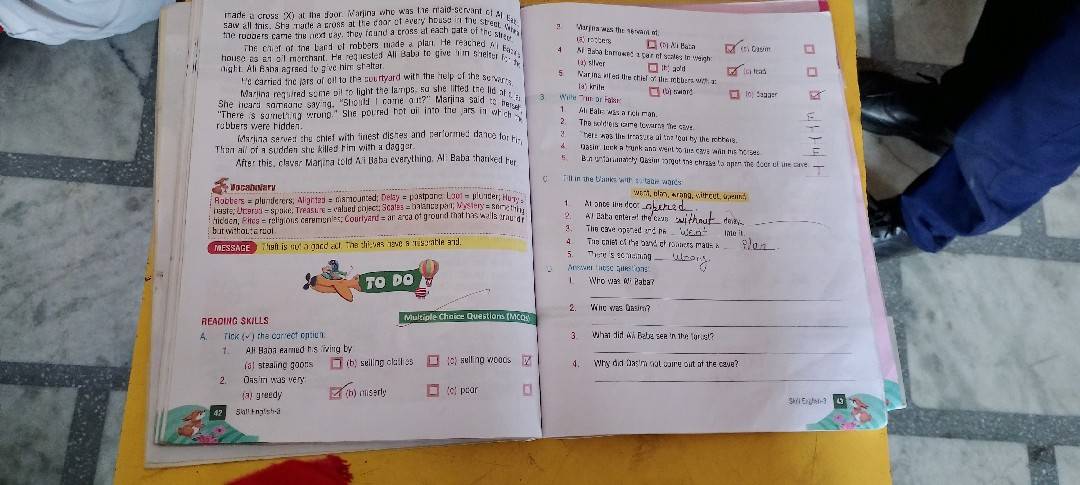 made a cross (X) at the door. Marjina who was the maid-servant of Ali
saw all this. She made a cross at the door of every house in the street.
the robbers came the next day, they found a cross at each gate of the street.
The chief of the band of robbers made a plan. He reached Ali
house as an oil merchant. He requested Ali Baba to give him shelter for
night. Ali Baba agreed to give him shelter.
He carried the jars of oil to the courtyard with the help of the servants.
Marjina required some oil to light the lamps, so she lifted the lid of
She heard someone saying, "Should I come out?" Marjina said to herself
"There is something wrong." She poured hot oil into the jars in which
robbers were hidden.
Marjina served the chief with finest dishes and performed dance for
Then all of a sudden she killed him with a dagger.
After this, clever Marjina told Ali Baba everything. Ali Baba thanked her
Vocabulary
Robbers = plunderers; Alighted = dismounted; Delay = postpone; Loot = plunder; Hurry =
haste; Utterus = spoke; Treasure = valued object; Scales = balance pan; Mystery = something
hidden; Rites = religious ceremonies; Courtyard = an area of ground that has walls around it
but without a roof.
MESSAGE Theft is not a good act. The thieves have a miserable end.
TO DO
READING SKILLS Multiple Choice Questions (MCQs)
A. Tick (✓) the correct option:
1. Ali Baba earned his living by
(a) stealing goods (b) selling clothes (c) selling woods ✓
2. Qasim was very:
(a) greedy ✓ (b) miserly (c) poor
42 Skill English-3
3. Marjina was the servant of:
(a) robbers (b) Ali Baba ✓ (c) Qasim
4. Ali Baba borrowed a pair of scales to weigh:
(a) silver (b) gold ✓ (c) lead
5. Marjina killed the chief of the robbers with a:
(a) knife (b) sword (c) dagger ✓
B. Write True or False:
1. Ali Baba was a rich man. F
2. The soldiers came towards the cave. T
3. There was the treasure of the loot by the robbers. T
4. Qasim took a trunk and went to the cave with his horses. F
5. But unfortunately Qasim forgot the phrase to open the door of the cave. T
C. Fill in the blanks with suitable words:
went, plan, wrong, without, opened
1. At once the door opened
2. Ali Baba entered the cave without delay.
3. The cave opened and he went into it.
4. The chief of the band of robbers made a plan
5. There is something wrong
D. Answer these questions:
1. Who was Ali Baba?
2. Who was Qasim?
3. What did Ali Baba see in the forest?
4. Why did Qasim not come out of the cave?
Skill English-3 43